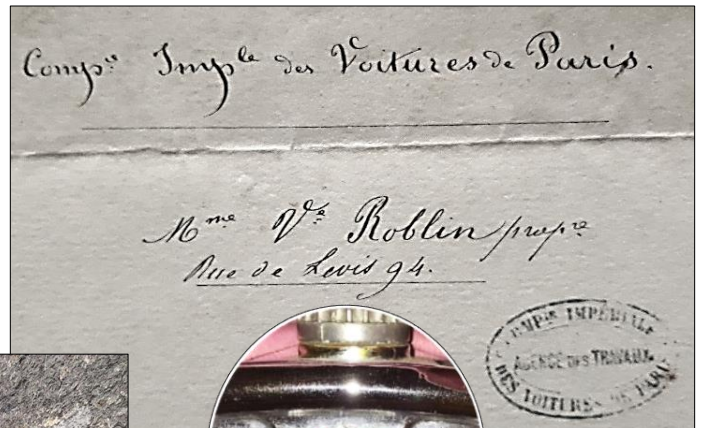 Compie Imple des Voitures de Paris.
Mme Ve Roblin propre
Rue de Levis 94.
COMPIE IMPÉRIALE
AGENCE DES TRAVAUX
DES VOITURES DE PARIS